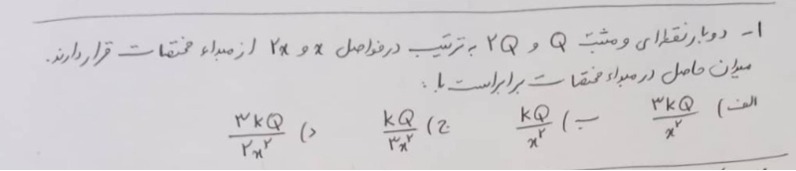 ۱- دو بار نقطه‌ای و مثبت Q و ۲Q به ترتیب در فواصل x و ۲x از مبداء مختصات قرار دارند.
میدان حاصل در مبداء مختصات برابر است با:
الف) ۳kQ/x² ب) kQ/x² ج) kQ/۳x² د) ۳kQ/۲x²